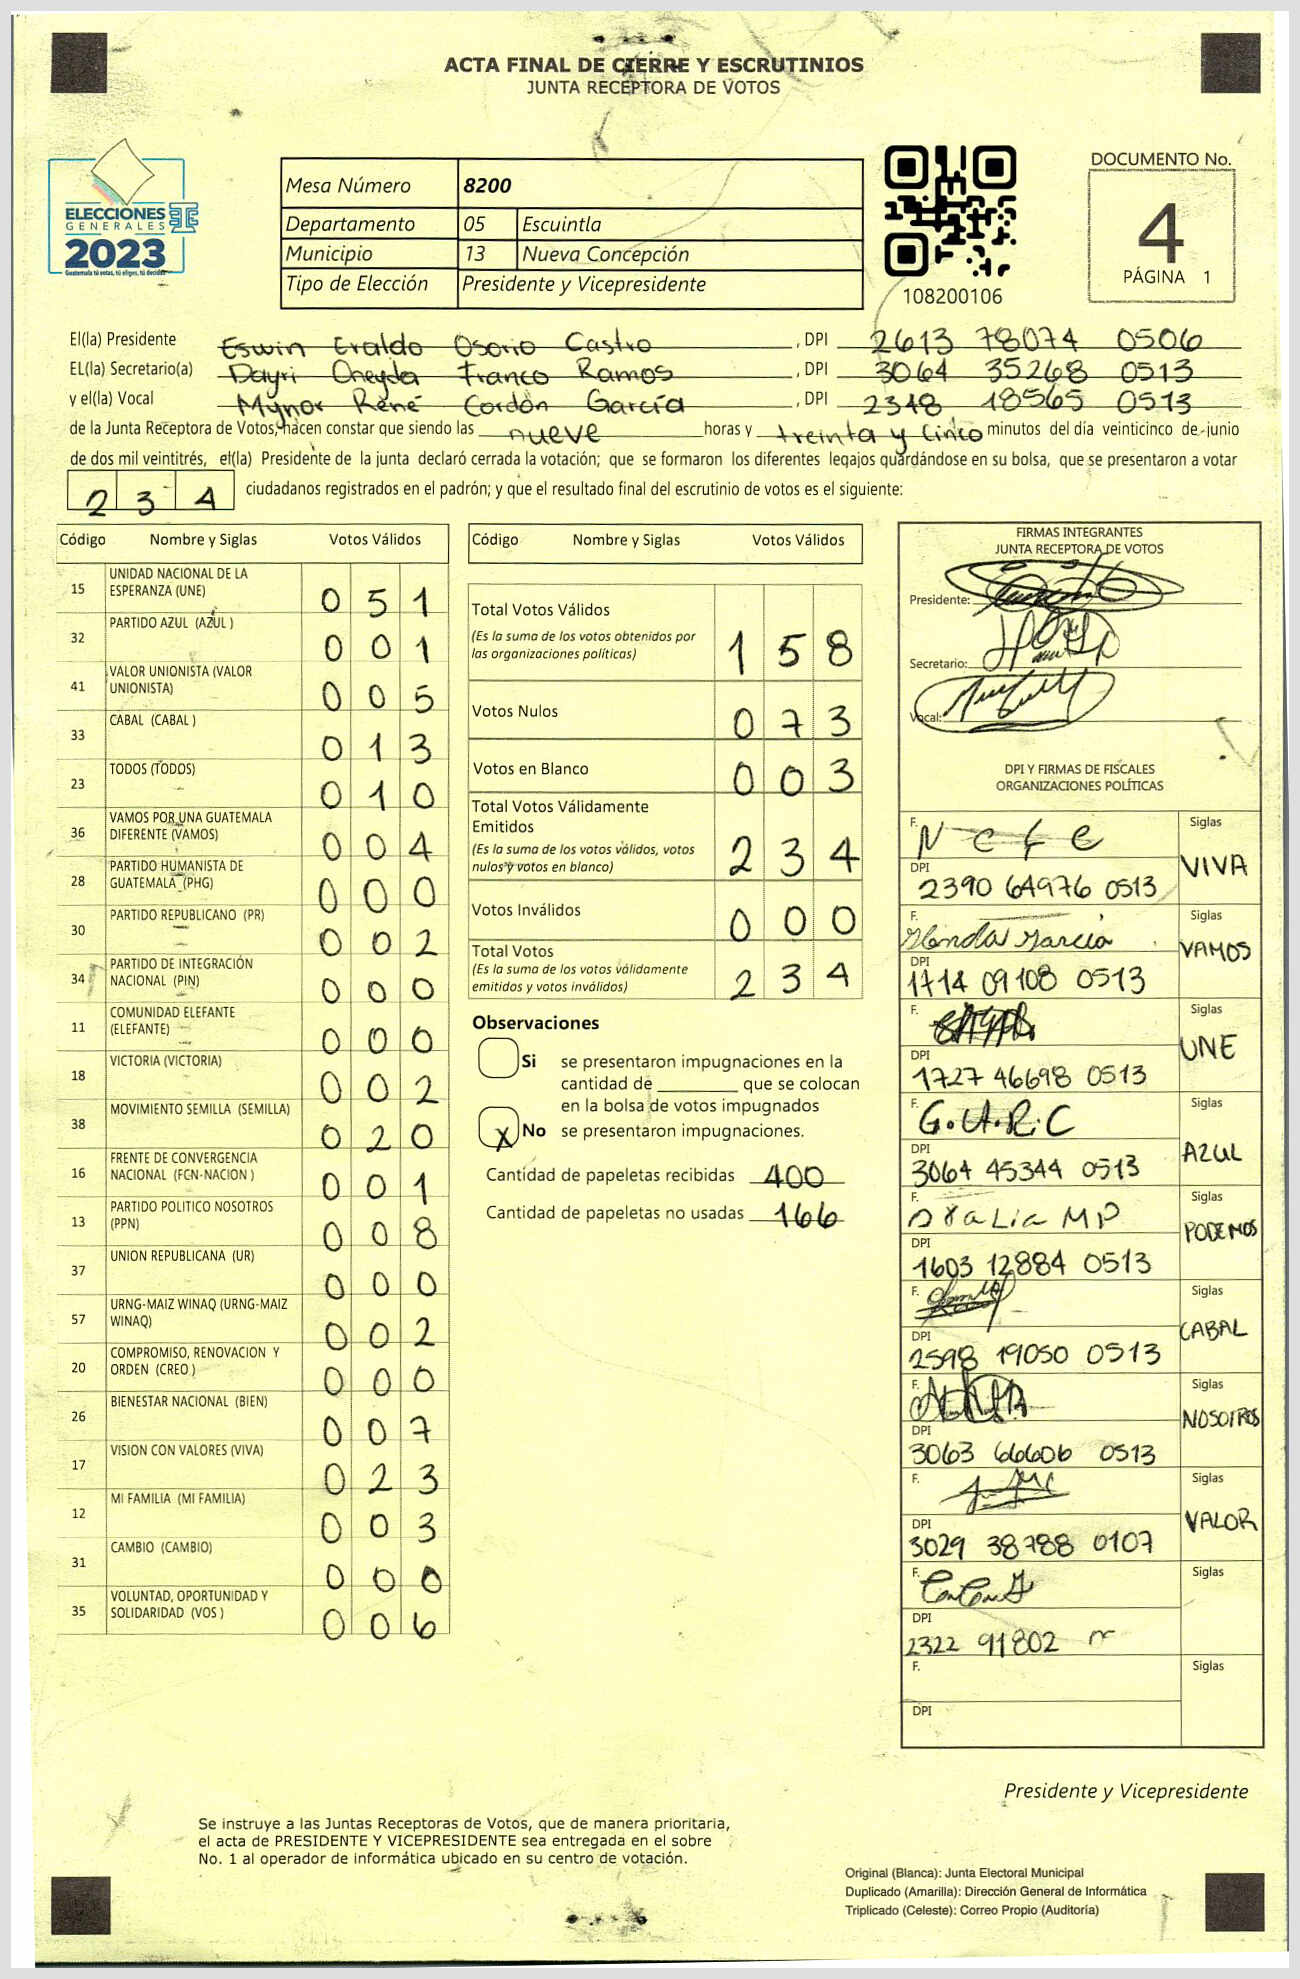 ACTA FINAL DE CIERRE Y ESCRUTINIOS
JUNTA RECEPTORA DE VOTOS
ELECCIONES
GENERALES
2023
Guatemala tú votas, tú eliges, tú decides
Mesa Número 8200
Departamento 05 Escuintla
Municipio 13 Nueva Concepción
Tipo de Elección Presidente y Vicepresidente
108200106
DOCUMENTO No.
4
PÁGINA 1
El(la) Presidente Eswin Eraldo Osorio Castro, DPI 2613 78074 0506
EL(la) Secretario(a) Dayri Oneyda Franco Ramos, DPI 3064 35268 0513
y el(la) Vocal Mynor René Cordón García, DPI 2348 18565 0513
de la Junta Receptora de Votos, hacen constar que siendo las nueve horas y treinta y cinco minutos del día veinticinco de junio
de dos mil veintitrés, el(la) Presidente de la junta declaró cerrada la votación; que se formaron los diferentes legajos guardándose en su bolsa, que se presentaron a votar
234 ciudadanos registrados en el padrón; y que el resultado final del escrutinio de votos es el siguiente:
Código Nombre y Siglas Votos Válidos
15 UNIDAD NACIONAL DE LA ESPERANZA (UNE) 051
32 PARTIDO AZUL (AZUL ) 001
41 VALOR UNIONISTA (VALOR UNIONISTA) 005
33 CABAL (CABAL ) 013
23 TODOS (TODOS) 010
36 VAMOS POR UNA GUATEMALA DIFERENTE (VAMOS) 004
28 PARTIDO HUMANISTA DE GUATEMALA (PHG) 000
30 PARTIDO REPUBLICANO (PR) 002
34 PARTIDO DE INTEGRACIÓN NACIONAL (PIN) 000
11 COMUNIDAD ELEFANTE (ELEFANTE) 000
18 VICTORIA (VICTORIA) 002
38 MOVIMIENTO SEMILLA (SEMILLA) 020
16 FRENTE DE CONVERGENCIA NACIONAL (FCN-NACION ) 001
13 PARTIDO POLITICO NOSOTROS (PPN) 008
37 UNION REPUBLICANA (UR) 000
57 URNG-MAIZ WINAQ (URNG-MAIZ WINAQ) 002
20 COMPROMISO, RENOVACION Y ORDEN (CREO ) 000
26 BIENESTAR NACIONAL (BIEN) 007
17 VISION CON VALORES (VIVA) 023
12 MI FAMILIA (MI FAMILIA) 003
31 CAMBIO (CAMBIO) 000
35 VOLUNTAD, OPORTUNIDAD Y SOLIDARIDAD (VOS ) 006
Código Nombre y Siglas Votos Válidos
Total Votos Válidos 158
(Es la suma de los votos obtenidos por
las organizaciones políticas)
Votos Nulos 073
Votos en Blanco 003
Total Votos Válidamente
Emitidos 234
(Es la suma de los votos válidos, votos
nulos y votos en blanco)
Votos Inválidos 000
Total Votos 234
(Es la suma de los votos válidamente
emitidos y votos inválidos)
Observaciones
Si se presentaron impugnaciones en la
cantidad de ________ que se colocan
en la bolsa de votos impugnados
X No se presentaron impugnaciones.
Cantidad de papeletas recibidas 400
Cantidad de papeletas no usadas 166
FIRMAS INTEGRANTES
JUNTA RECEPTORA DE VOTOS
Presidente:
Secretario:
Vocal:
DPI Y FIRMAS DE FISCALES
ORGANIZACIONES POLÍTICAS
F. Siglas VIVA
DPI 2390 64976 0513
F. Glenda García Siglas VAMOS
DPI 1714 09108 0513
F. Siglas UNE
DPI 1727 46698 0513
F. G.U.R.C Siglas AZUL
DPI 3064 45344 0513
F. Siglas PODEMOS
DPI 1603 12884 0513
F. Siglas CABAL
DPI 2598 19050 0513
F. Siglas NOSOTROS
DPI 3063 66606 0513
F. Siglas VALOR
DPI 3029 38788 0107
F. Siglas
DPI 2322 91802
F. Siglas
DPI
Presidente y Vicepresidente
Se instruye a las Juntas Receptoras de Votos, que de manera prioritaria,
el acta de PRESIDENTE Y VICEPRESIDENTE sea entregada en el sobre
No. 1 al operador de informática ubicado en su centro de votación.
Original (Blanca): Junta Electoral Municipal
Duplicado (Amarilla): Dirección General de Informática
Triplicado (Celeste): Correo Propio (Auditoría)